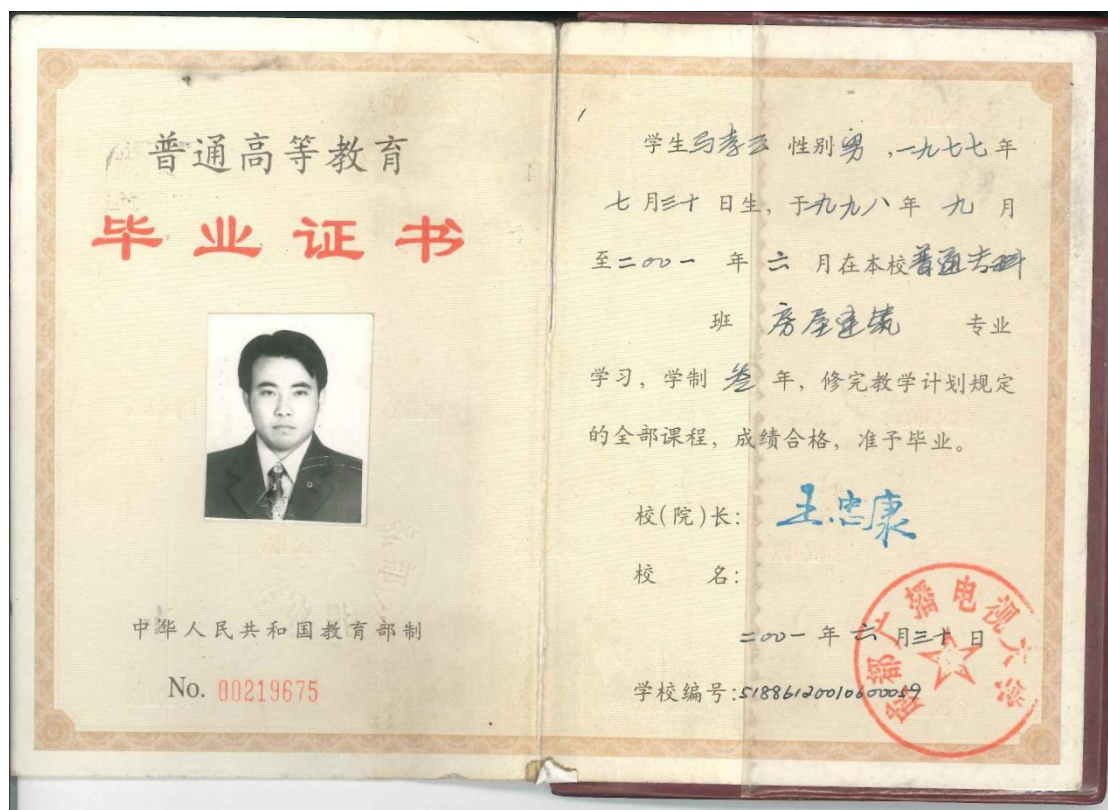 普通高等教育
毕业证书
中华人民共和国教育部制
No. 00219675
学生马孝云 性别男，一九七七年
七月三十日生，于九九八年九月
至二〇〇一年六月在本校普通专科
班 房屋建筑 专业
学习，学制 叁 年，修完教学计划规定
的全部课程，成绩合格，准予毕业。
校(院)长：王忠康
校 名：
成都广播电视大学
二〇〇一年六月三十日
学校编号：518861200106000059